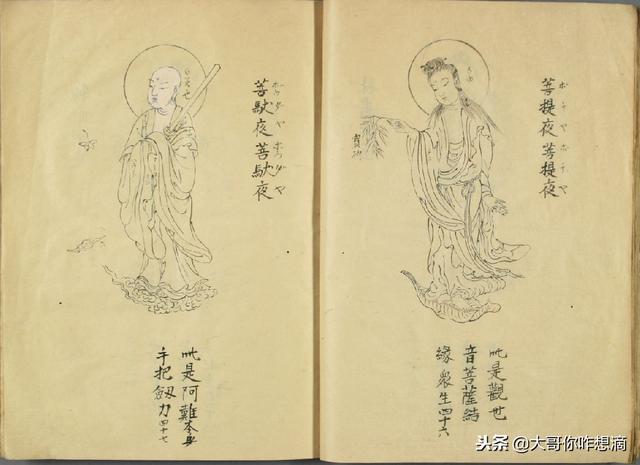 菩提夜菩提夜
此是觀世
音菩薩結
緣衆生四十六
菩馱夜菩馱夜
此是阿難本身
手把劔力四十七
头条 @大哥你咋想滴